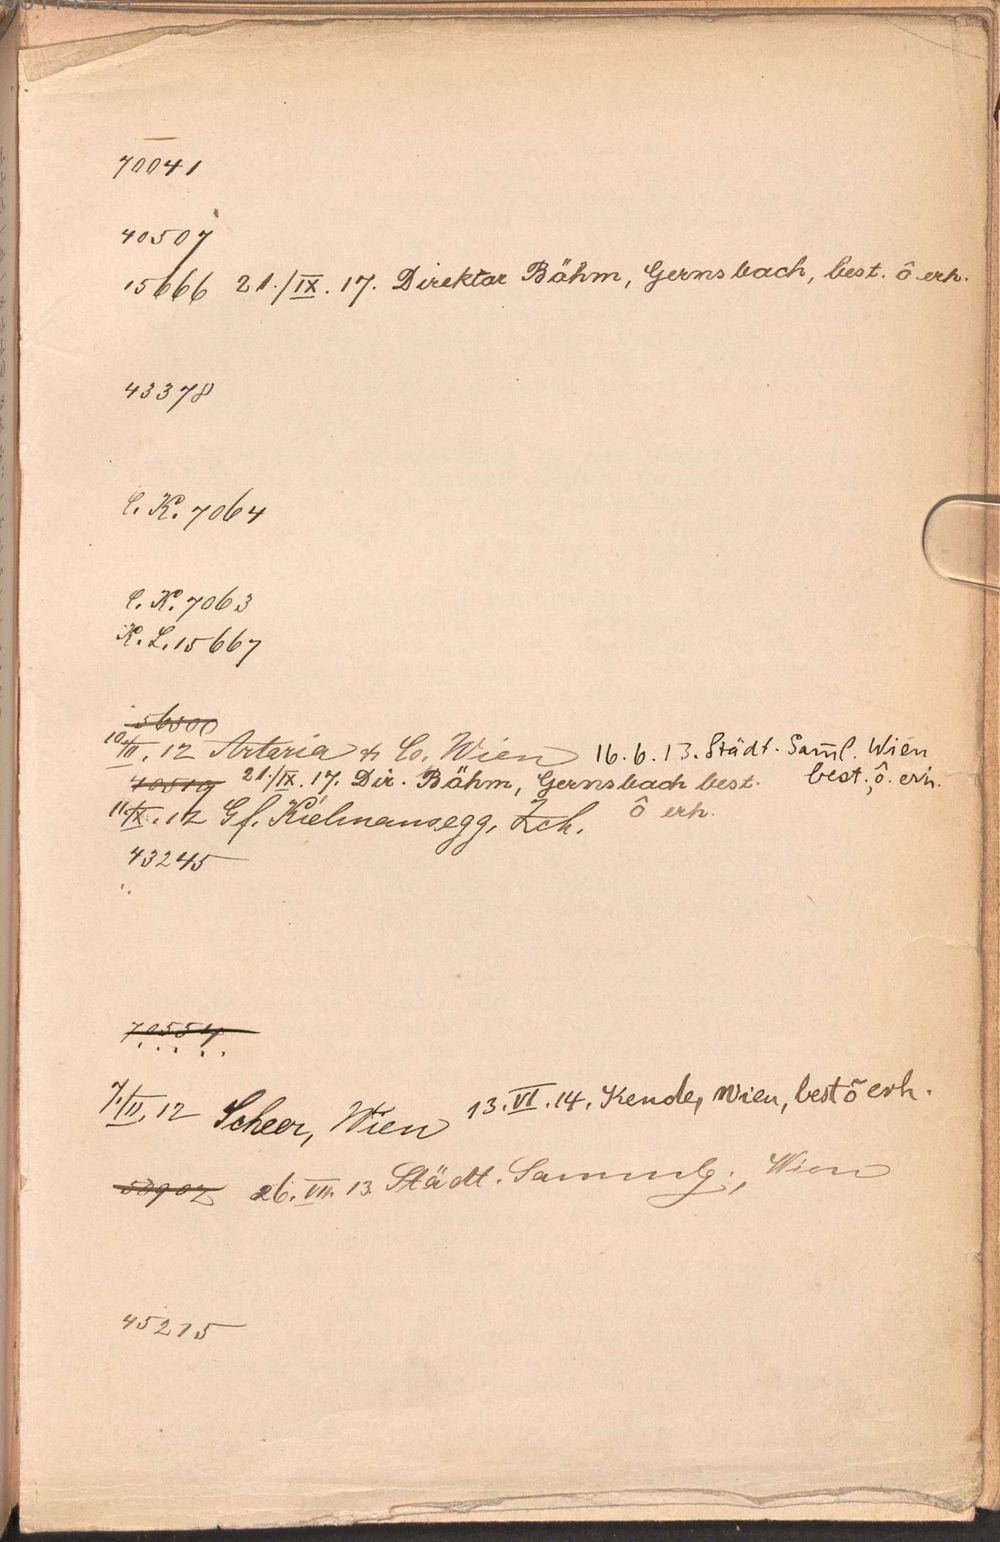 70041
40507
15666 21./IX. 17. Direktor Böhm, Gernsbach, best. ô erh.
43378
C. K. 7064
C. K. 7063
K. L. 15667
56500
10./III. 12 Artaria & Co. Wien 16. 6. 13. Städt. Saml. Wien
best. ô. erh.
40519 21./IX. 17. Dir. Böhm, Gernsbach best.
ô erh.
11./IX. 12 Gf. Kielmansegg, Zch.
43245
70554
7./II. 12 Scheer, Wien 13. VI. 14. Kende, Wien, best ô erh.
50902 26. VII. 13 Städt. Sammlg., Wien
45215